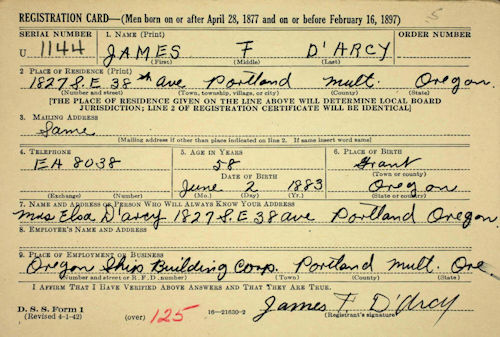 REGISTRATION CARD—(Men born on or after April 28, 1877 and on or before February 16, 1897)
5
SERIAL NUMBER 1. NAME (Print) ORDER NUMBER
U 1144 JAMES F D'ARCY
(First) (Middle) (Last)
2 PLACE OF RESIDENCE (Print)
1827 S.E 38th ave Portland Mult. Oregon.
(Number and street) (Town, township, village, or city) (County) (State)
[THE PLACE OF RESIDENCE GIVEN ON THE LINE ABOVE WILL DETERMINE LOCAL BOARD
JURISDICTION; LINE 2 OF REGISTRATION CERTIFICATE WILL BE IDENTICAL]
3. MAILING ADDRESS
Same
[Mailing address if other than place indicated on line 2. If same insert word same]
4. TELEPHONE 5. AGE IN YEARS 6. PLACE OF BIRTH
EA 8038 58 Grant
DATE OF BIRTH (Town or county)
June 2 1883 Oregon
(Exchange) (Number) (Mo.) (Day) (Yr.) (State or country)
7. NAME AND ADDRESS OF PERSON WHO WILL ALWAYS KNOW YOUR ADDRESS
Mrs Elsa D'arcy 1827 S.E 38 ave Portland Oregon.
8. EMPLOYER'S NAME AND ADDRESS
9. PLACE OF EMPLOYMENT OR BUSINESS
Oregon Ship Building Corp. Portland Mult. Ore
(Number and street or R. F. D. number) (Town) (County) (State)
I AFFIRM THAT I HAVE VERIFIED ABOVE ANSWERS AND THAT THEY ARE TRUE.
D. S. S. Form 1
(Revised 4-1-42) (over) 125 16—21630-2 James F. D'Arcy
(Registrant's signature)